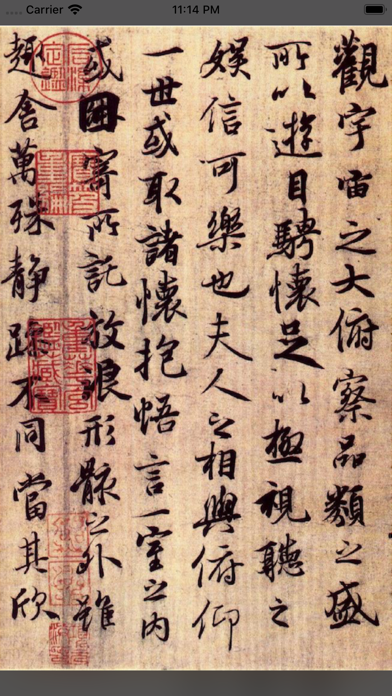 Carrier 11:14 PM
觀宇宙之大俯察品類之盛
所以遊目騁懷足以極視聽之
娛信可樂也夫人之相與俯仰
一世或取諸懷抱悟言一室之內
或因寄所託放浪形骸之外雖
趣舍萬殊靜躁不同當其欣